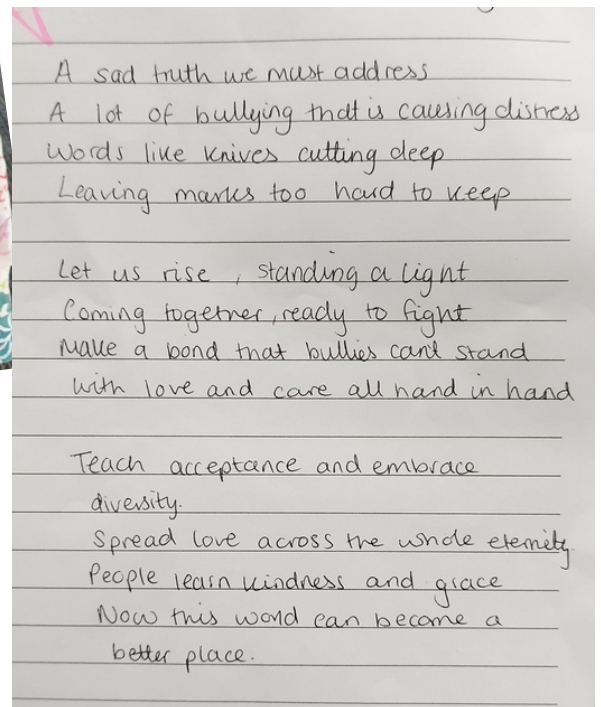 A sad truth we must address
A lot of bullying that is causing distress
Words like knives cutting deep
Leaving marks too hard to keep
Let us rise, standing a light
Coming together, ready to fight
Make a bond that bullies can't stand
With love and care all hand in hand
Teach acceptance and embrace
diversity.
Spread love across the whole eternity.
People learn kindness and grace
Now this world can become a
better place.